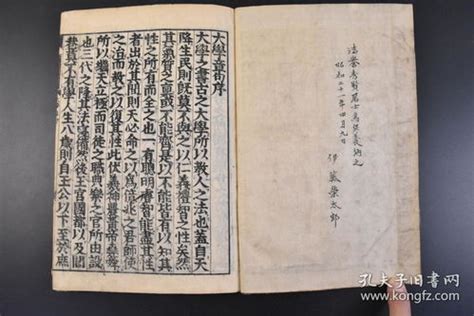 秀賢居士為供養納之
昭和二十一年四月九日
伊藤榮太郎
大學章句序
大學之書古之大學所以教人之法也蓋自天
降生民則既莫不與之以仁義禮智之性矣然
其氣質之稟或不能齊是以不能皆有以知其
性之所有而全之也一有聰明睿智能盡其性
者出於其間則天必命之以爲億兆之君師使
之治而教之以復其性此伏羲神農黃帝堯舜
所以繼天立極而司徒之職典樂之官所由設
也三代之隆其法寖備然後王宮國都以及閭
巷莫不有學人生八歲則自王公以下至於庶
孔夫子旧书网
www.kongfz.com